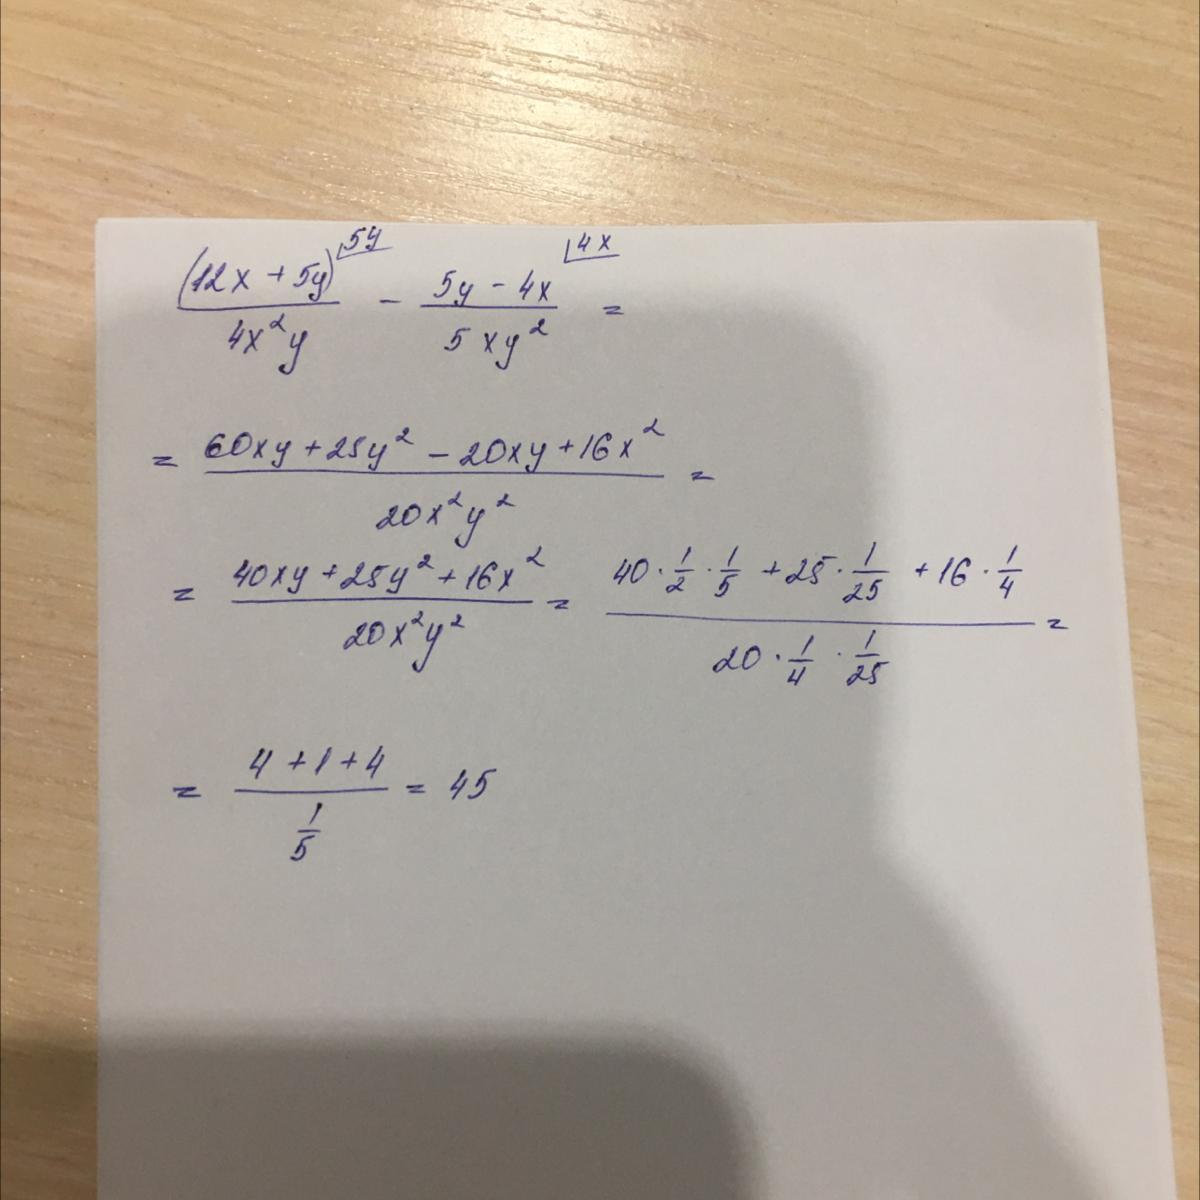 (12x + 5y)⌊5y / 4x²y − 5y − 4x⌊4x / 5xy² =
= 60xy + 25y² − 20xy + 16x² / 20x²y² =
= 40xy + 25y² + 16x² / 20x²y² = 40 · 1/2 · 1/5 + 25 · 1/25 + 16 · 1/4 / 20 · 1/4 · 1/25 =
= 4 + 1 + 4 / 1/5 = 45